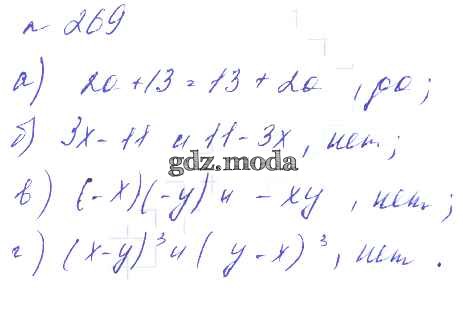 № 269
а) 2a + 13 = 13 + 2a , да;
б) 3x - 11 и 11 - 3x, нет;
gdz.moda
в) (-x)(-y) и - xy , нет;
г) (x-y)³ и (y-x)³, нет.